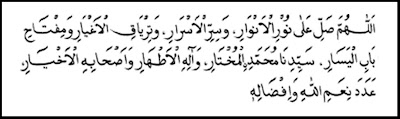 اَللّٰهُمَّ صَلِّ عَلٰى نُوْرِ الْاَنْوَارِ. وَسِرِّ الْاَسْرَارِ. وَتِرْيَاقِ الْاَغْيَارِ وَمِفْتَاحِ
بَابِ الْيَسَارِ. سَيِّدِنَا مُحَمَّدٍ الْمُخْتَارِ. وَآلِهِ الْاَطْهَارِ وَاَصْحَابِهِ الْاَخْيَارِ
عَدَدَ نِعَمِ اللّٰهِ وَاِفْضَالِهِ